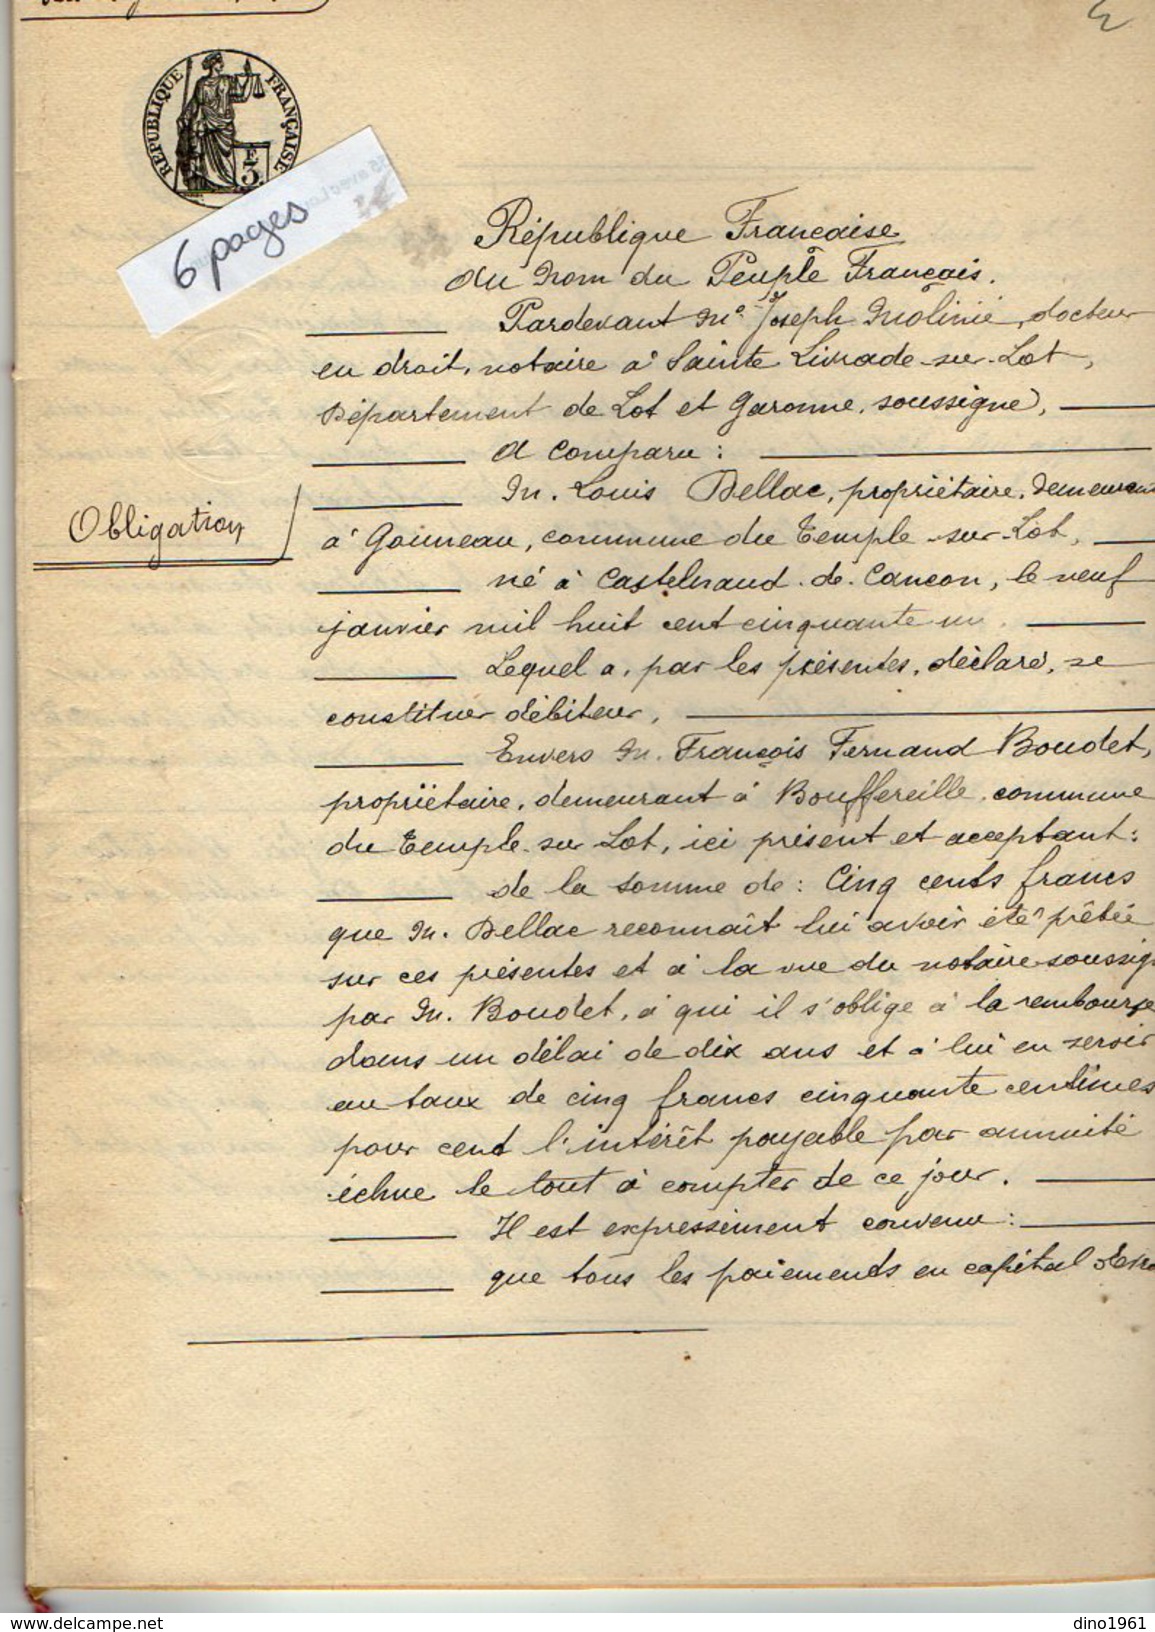 RÉPUBLIQUE FRANÇAISE
F
3
6 pages
République Française
Au Nom du Peuple Français.
Pardevant Me Joseph Molinié, docteur
en droit, notaire à Sainte Livrade-sur-Lot,
Département de Lot et Garonne, soussigné,
A comparu :
Obligation
M. Louis Dellac, propriétaire, demeurant
à commune du Temple-sur-Lot,
né à Castelnaud-de-Cancon, le neuf
janvier mil huit cent cinquante un.
Lequel a, par les présentes, déclaré, se
constituer débiteur,
Envers M. François Fernand Boudet,
propriétaire, demeurant à Bouffereille, commune
du Temple-sur-Lot, ici présent et acceptant :
de la somme de : Cinq cents francs
que M. Dellac reconnaît lui avoir été prêtée
sur ces présentes et à la vue du notaire soussig
par M. Boudet, à qui il s'oblige à la rembourse
dans un délai de dix ans et à lui en servir
au taux de cinq francs cinquante centimes
pour cent l'intérêt payable par annuité
échue le tout à compter de ce jour.
Il est expressément convenu :
que tous les paiements en capital
https://www.delcampe.net
dino1961